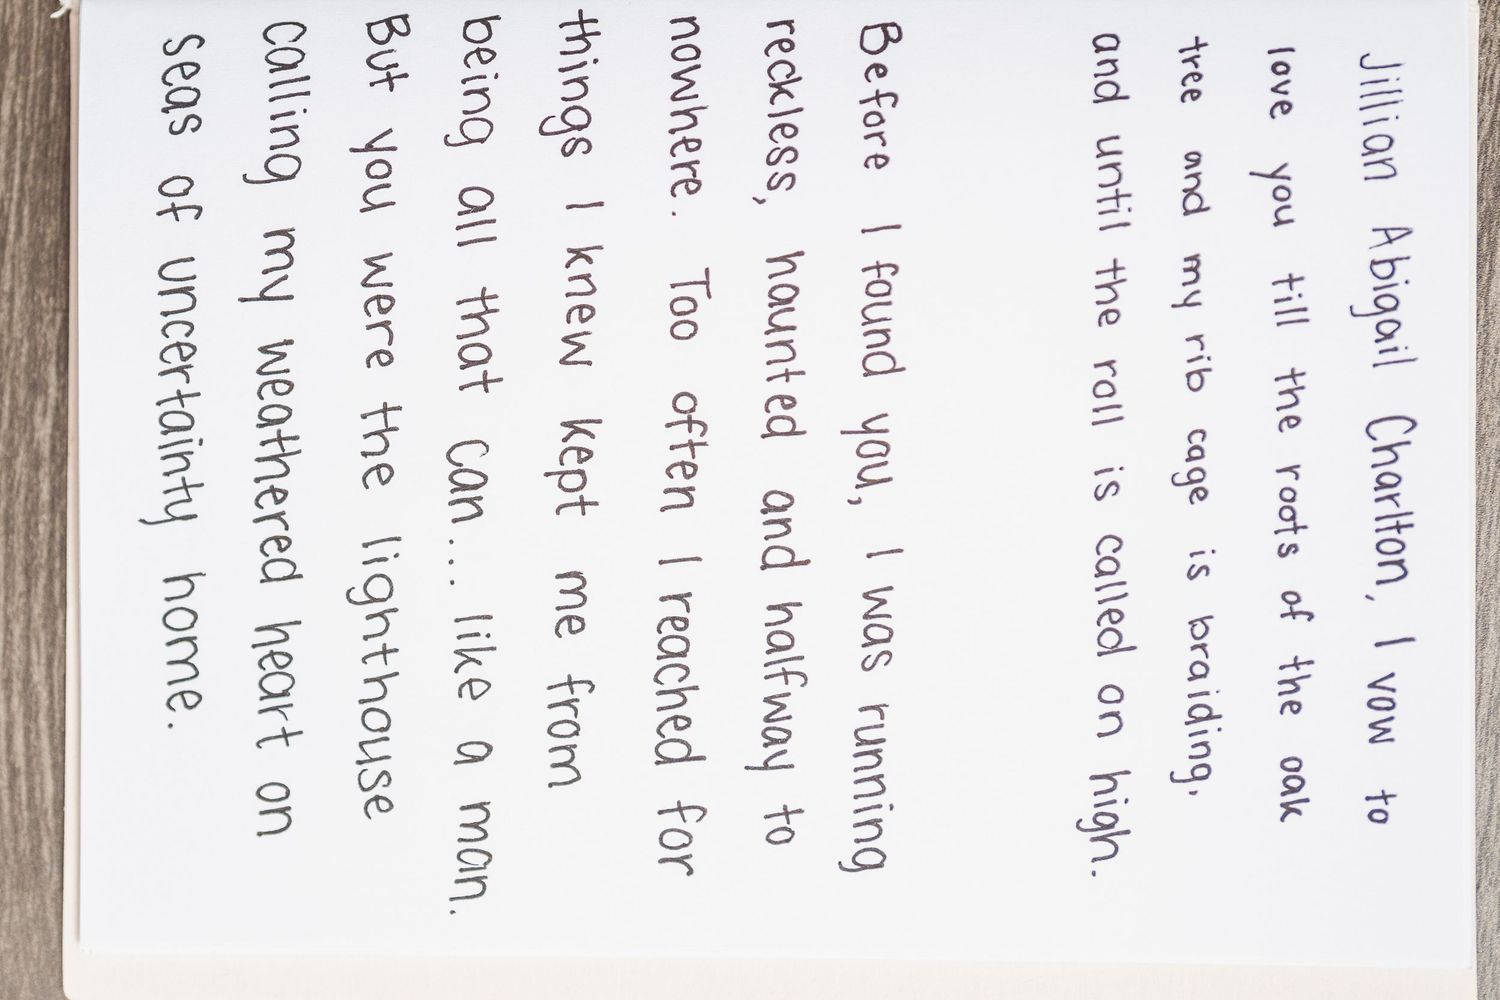 Jillian Abigail Charlton, I vow to
love you till the roots of the oak
tree and my rib cage is braiding,
and until the roll is called on high.
Before I found you, I was running
reckless, haunted and halfway to
nowhere. Too often I reached for
things I knew kept me from
being all that can... like a man.
But you were the lighthouse
calling my weathered heart on
seas of uncertainty home.